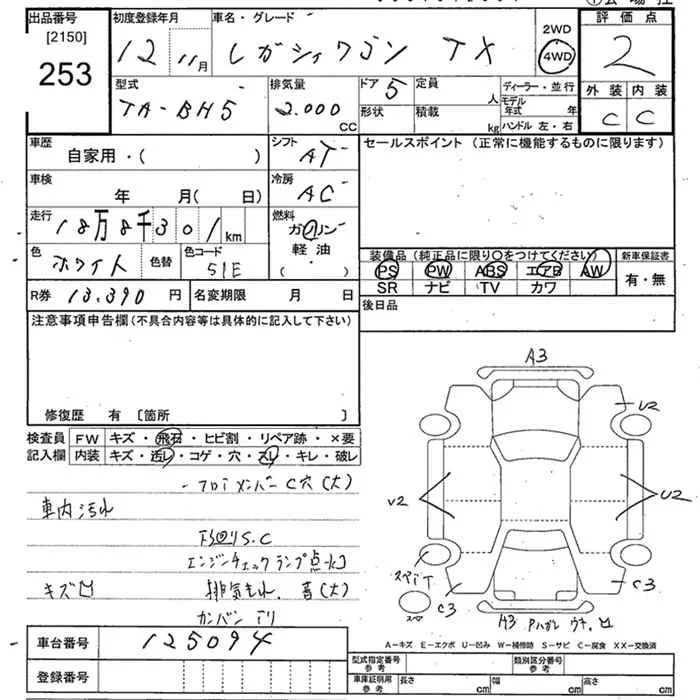 出品番号 初度登録年月 車名・グレード 2WD 評価点
[2150] 12年 11月 レガシィワゴン TX 4WD 2
253
型式 排気量 ドア 定員 ディーラー・並行 外装 内装
TA-BH5 2.000 CC 5 人 モデル年式 年 C C
形状 積載 kg ハンドル 左・右
車歴 シフト セールスポイント (正常に機能するものに限ります)
自家用・( ) AT
車検 冷房
年 月( 日) AC
走行 燃料
18万8千301 km ガソリン
軽油・
( )
色 色替 色コード 装備品(純正品に限り○をつけてください) 新車保証書
ホワイト 51E PS PW ABS エアB AW 有・無
SR ナビ TV カワ
R券 13.390 円 名変期限 月 日 後日品
注意事項申告欄(不具合内容等は具体的に記入して下さい)
修復歴 有 [箇所 ]
検査員 FW キズ・飛石・ヒビ割・リペア跡・×要
記入欄 内装 キズ・汚レ・コゲ・穴・スレ・キレ・破レ
フロアメンバーC穴(大)
車内汚れ
下回りS.C
エンジンチェックランプ点灯
キズ凹 排気もれ、音(大)
カンバンアリ
A3
U2
U2 U2
スペT
C3 C3
A3 Pハガレ ワレ 凹
車台番号 125094
登録番号
A-キズ E-エクボ U-凹み W-補修跡 S-サビ C-腐食 XX-交換済
型式指定番号 参考 類別区分番号 参考
車庫証明用 参考 長さ cm 幅 cm 高さ cm